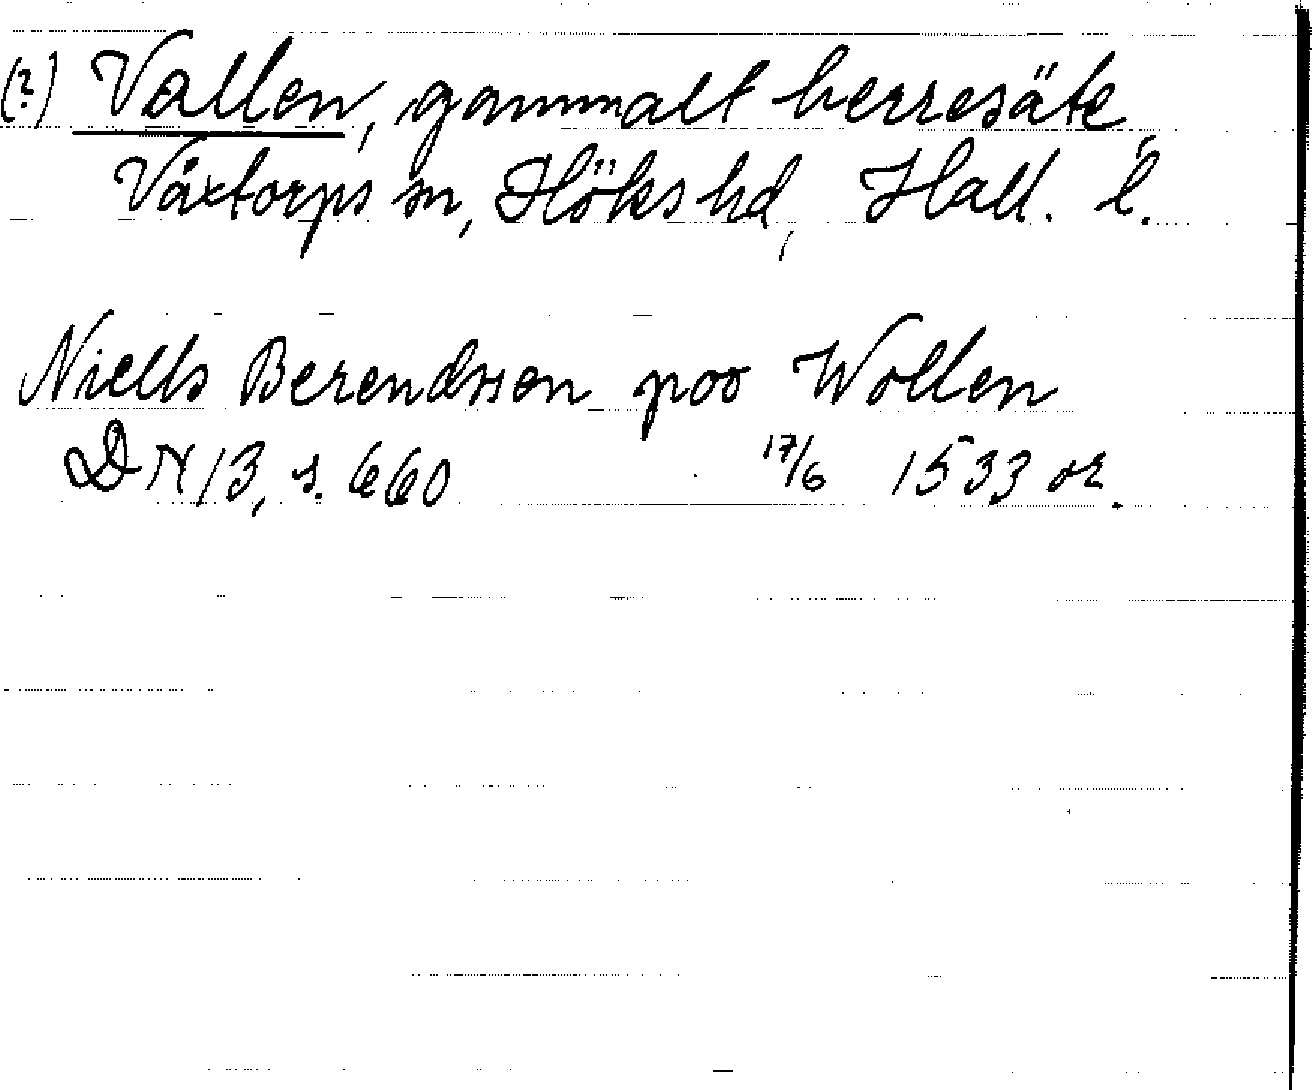 (?) Vallen, gammalt herresäte
Våxtorps sn, Höks hd, Hall. l.
Niells Berendssen poo Wollen
DN 13, s. 660 17/6 1533 or.